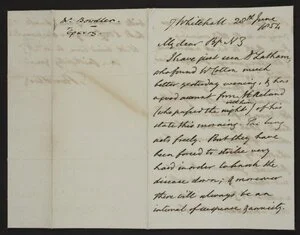 Dr Bowdler
7 Whitehall 28th June
1854
My dear
I have just seen Dr Latham,
who found Mr Colton much
better yesterday evening, & has
a good account from
(who passed the night) of his
state this morning. The lung
acts freely. But they have
been forced to strike very
hard in order to knock the
disease down; & moreover
there will always be an
interval of suspense & anxiety.